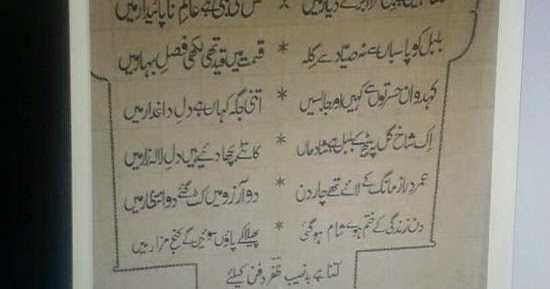 دیار میں * کس کی بنی ہے عالمِ ناپائیدار میں
بلبل کو پاسباں سے نہ صیاد سے گلہ * قسمت میں قید تھی لکھی فصلِ بہار میں
کہدو ان حسرتوں سے کہیں اور جا بسیں * اتنی جگہ کہاں ہے دلِ داغدار میں
اِک شاخِ گل پہ بیٹھ کے بلبل ہے شادماں * کانٹے بچھا دیے ہیں دلِ لالہ زار میں
عمرِ دراز مانگ کے لائے تھے چار دن * دو آرزو میں کٹ گئے دو انتظار میں
دن زندگی کے ختم ہوئے شام ہو گئی * پھیلا کے پاؤں سوئیں گے کنجِ مزار میں
کتنا ہے بدنصیب ظفر دفن کیلئے